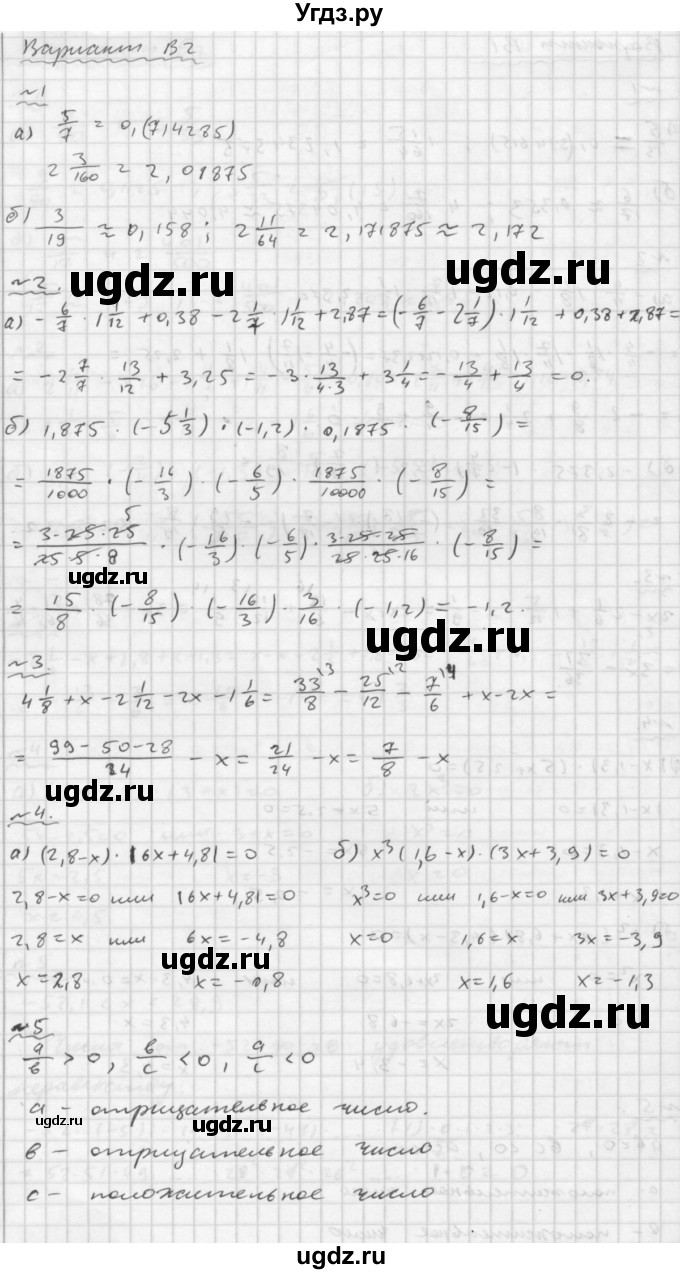 Угдз.ру
Вариант В2
~1
а) 5/7 = 0,(714285)
2 3/160 = 2,01875
б) 3/19 ≈ 0,158; 2 11/64 = 2,171875 ≈ 2,172
ugdz.ru ugdz.ru
~2.
а) - 6/7 · 1 1/12 + 0,38 - 2 1/7 · 1 1/12 + 2,87 = (- 6/7 - 2 1/7) · 1 1/12 + 0,38 + 2,87 =
= -2 7/7 · 13/12 + 3,25 = -3 · 13/4·3 + 3 1/4 = - 13/4 + 13/4 = 0.
б) 1,875 · (-5 1/3) · (-1,2) · 0,1875 · (- 8/15) =
= 1875/1000 · (- 16/3) · (- 6/5) · 1875/10000 · (- 8/15) =
= 3·25·25 5/25·5·8 · (- 16/3) · (- 6/5) · 3·25·25/25·25·16 · (- 8/15) =
ugdz.ru
= 15/8 · (- 8/15) · (- 16/3) · 3/16 · (-1,2) = -1,2.
ugdz.ru
~3.
4 1/8 + x - 2 1/12 - 2x - 1 1/6 = 33/8 \3 - 25/12 \2 - 7/6 \4 + x - 2x =
= 99 - 50 - 28/24 - x = 21/24 - x = 7/8 - x
ugdz.ru
~4.
а) (2,8-x) · |6x+4,8| = 0 б) x³(1,6-x) · (3x+3,9) = 0
2,8-x=0 или |6x+4,8|=0 x³=0 или 1,6-x=0 или 3x+3,9=0
2,8=x или 6x=-4,8 x=0 1,6=x 3x=-3,9
ugdz.ru
x=2,8 x=-0,8 x=1,6 x=-1,3
ugdz.ru
~5
a/в > 0, в/c < 0, a/c < 0
а - отрицательное число.
ugdz.ru
в - отрицательное число
с - положительное число
ugdz.ru
ugdz.ru